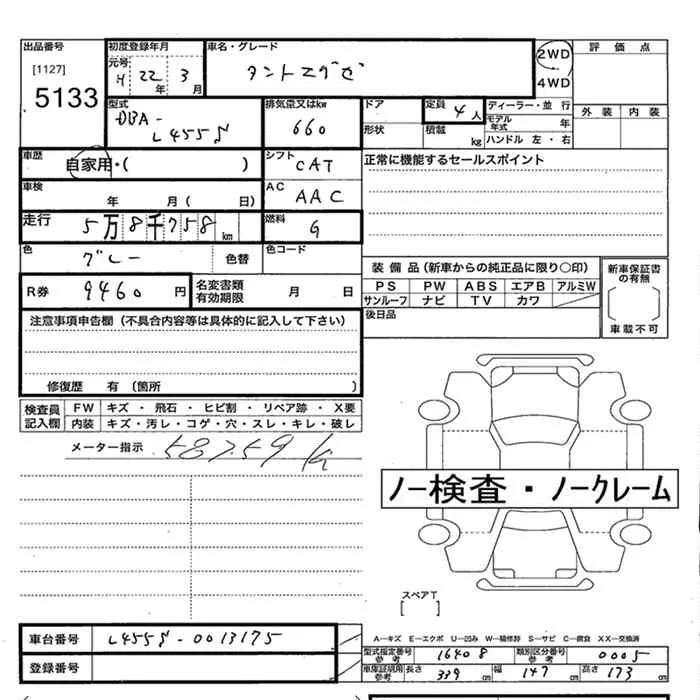 出品番号
[1127]
5133
初度登録年月
元号
H 22年 3月
車名・グレード
タントエグゼ
2WD
4WD
評価点
外装 内装
型式
DBA-
L455S
排気量又はkw
660
ドア
形状
定員 4人
積載 kg
ディーラー・並行
モデル年式 年
ハンドル 左・右
車歴
自家用・( )
シフト
CAT
正常に機能するセールスポイント
車検
年 月( 日)
AC
AAC
走行
5万8千758km
燃料
G
色
グレー
色替
色コード
R券 9460円
名変書類有効期限 月 日
装備品(新車からの純正品に限り○印)
PS PW ABS エアB アルミW
サンルーフ ナビ TV カワ
後日品
新車保証書の有無
車載不可
注意事項申告欄(不具合内容等は具体的に記入して下さい)
修復歴 有(箇所 )
検査員記入欄
FW キズ・飛石・ヒビ割・リペア跡・X要
内装 キズ・汚レ・コゲ・穴・スレ・キレ・破レ
メーター指示 58759k
ノー検査・ノークレーム
スペアT
[ ]
車台番号 L455S-0013175
登録番号
A―キズ E―エクボ U―凹み W―補修跡 S―サビ C―腐食 XX―交換済
型式指定番号参考 16408
類別区分番号参考 0005
車庫証明用参考 長さ 339cm 幅 147cm 高さ 173cm